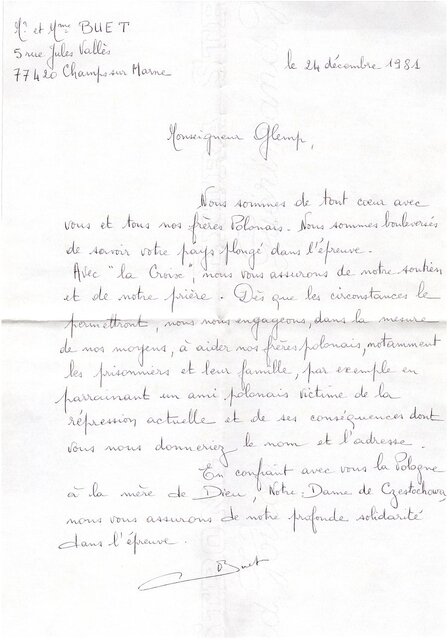 Mr et Mme BUET
5 rue Jules Vallès
77420 Champs sur Marne
le 24 décembre 1981
Monseigneur Glemp,
Nous sommes de tout cœur avec
vous et tous nos frères Polonais. Nous sommes bouleversés
de savoir votre pays plongé dans l'épreuve.
Avec "la Croix", nous vous assurons de notre soutien
et de notre prière. Dès que les circonstances le
permettront, nous nous engageons, dans la mesure
de nos moyens, à aider nos frères polonais, notamment
les prisonniers et leur famille, par exemple en
parrainant un ami polonais victime de la
répression actuelle et de ses conséquences dont
vous nous donneriez le nom et l'adresse.
En confiant avec vous la Pologne
à la mère de Dieu, Notre Dame de Czestochowa,
nous vous assurons de notre profonde solidarité
dans l'épreuve.
Buet